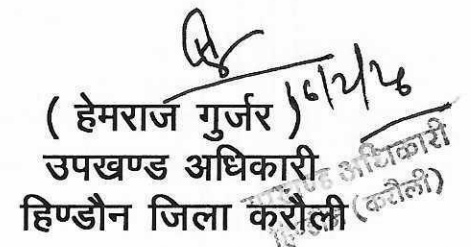 16/2/26
( हेमराज गुर्जर )
उपखण्ड अधिकारी
हिण्डौन जिला करौली
उपखण्ड अधिकारी
हिण्डौन (करौली)